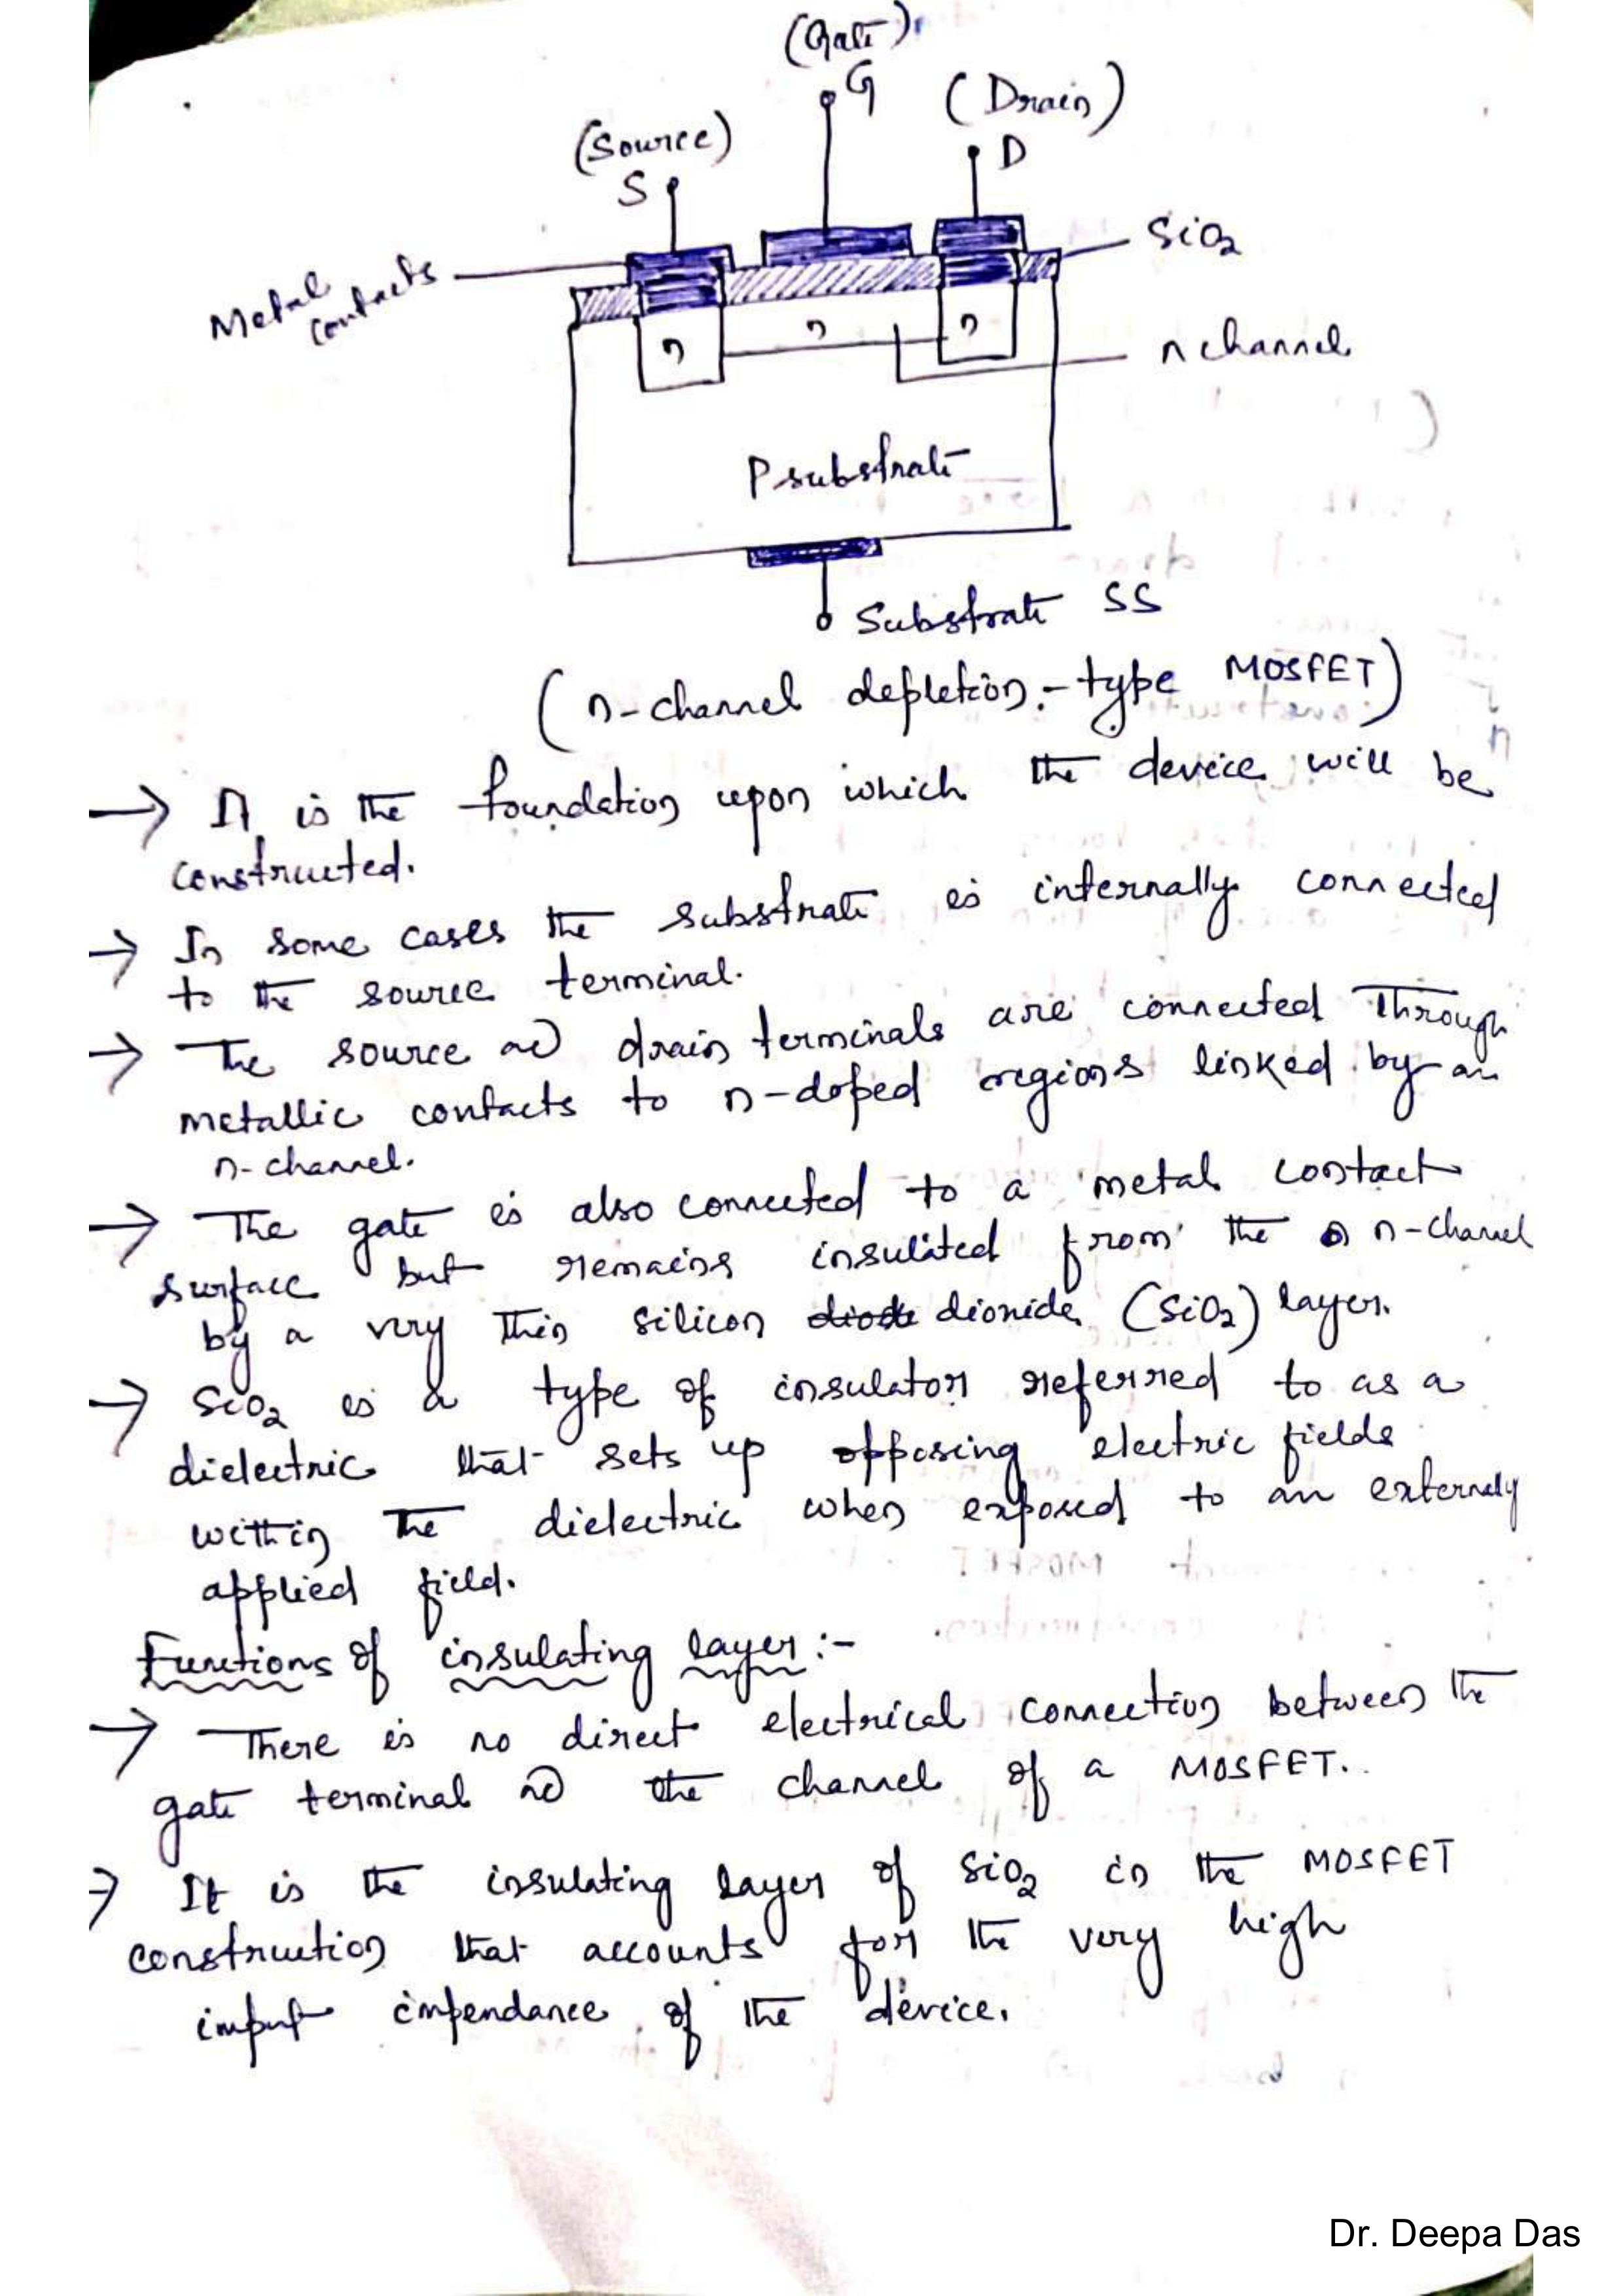 (Gate)
G
(Drain)
D
(Source)
S
SiO2
Metal
contacts
n
n
n
n channel
P substrate
Substrate SS
(n-channel depletion-type MOSFET)
→ It is the foundation upon which the device will be
constructed.
→ In some cases the substrate is internally connected
to the source terminal.
→ The source and drain terminals are connected through
metallic contacts to n-doped regions linked by an
n-channel.
→ The gate is also connected to a metal contact
surface but remains insulated from the n-channel
by a very thin silicon dioxide (SiO2) layer.
→ SiO2 is a type of insulator referred to as a
dielectric that sets up opposing electric fields
within the dielectric when exposed to an externaly
applied field.
Functions of insulating layer :-
→ There is no direct electrical connection between the
gate terminal and the channel of a MOSFET.
→ It is the insulating layer of SiO2 in the MOSFET
construction that accounts for the very high
input impendance of the device.
Dr. Deepa Das